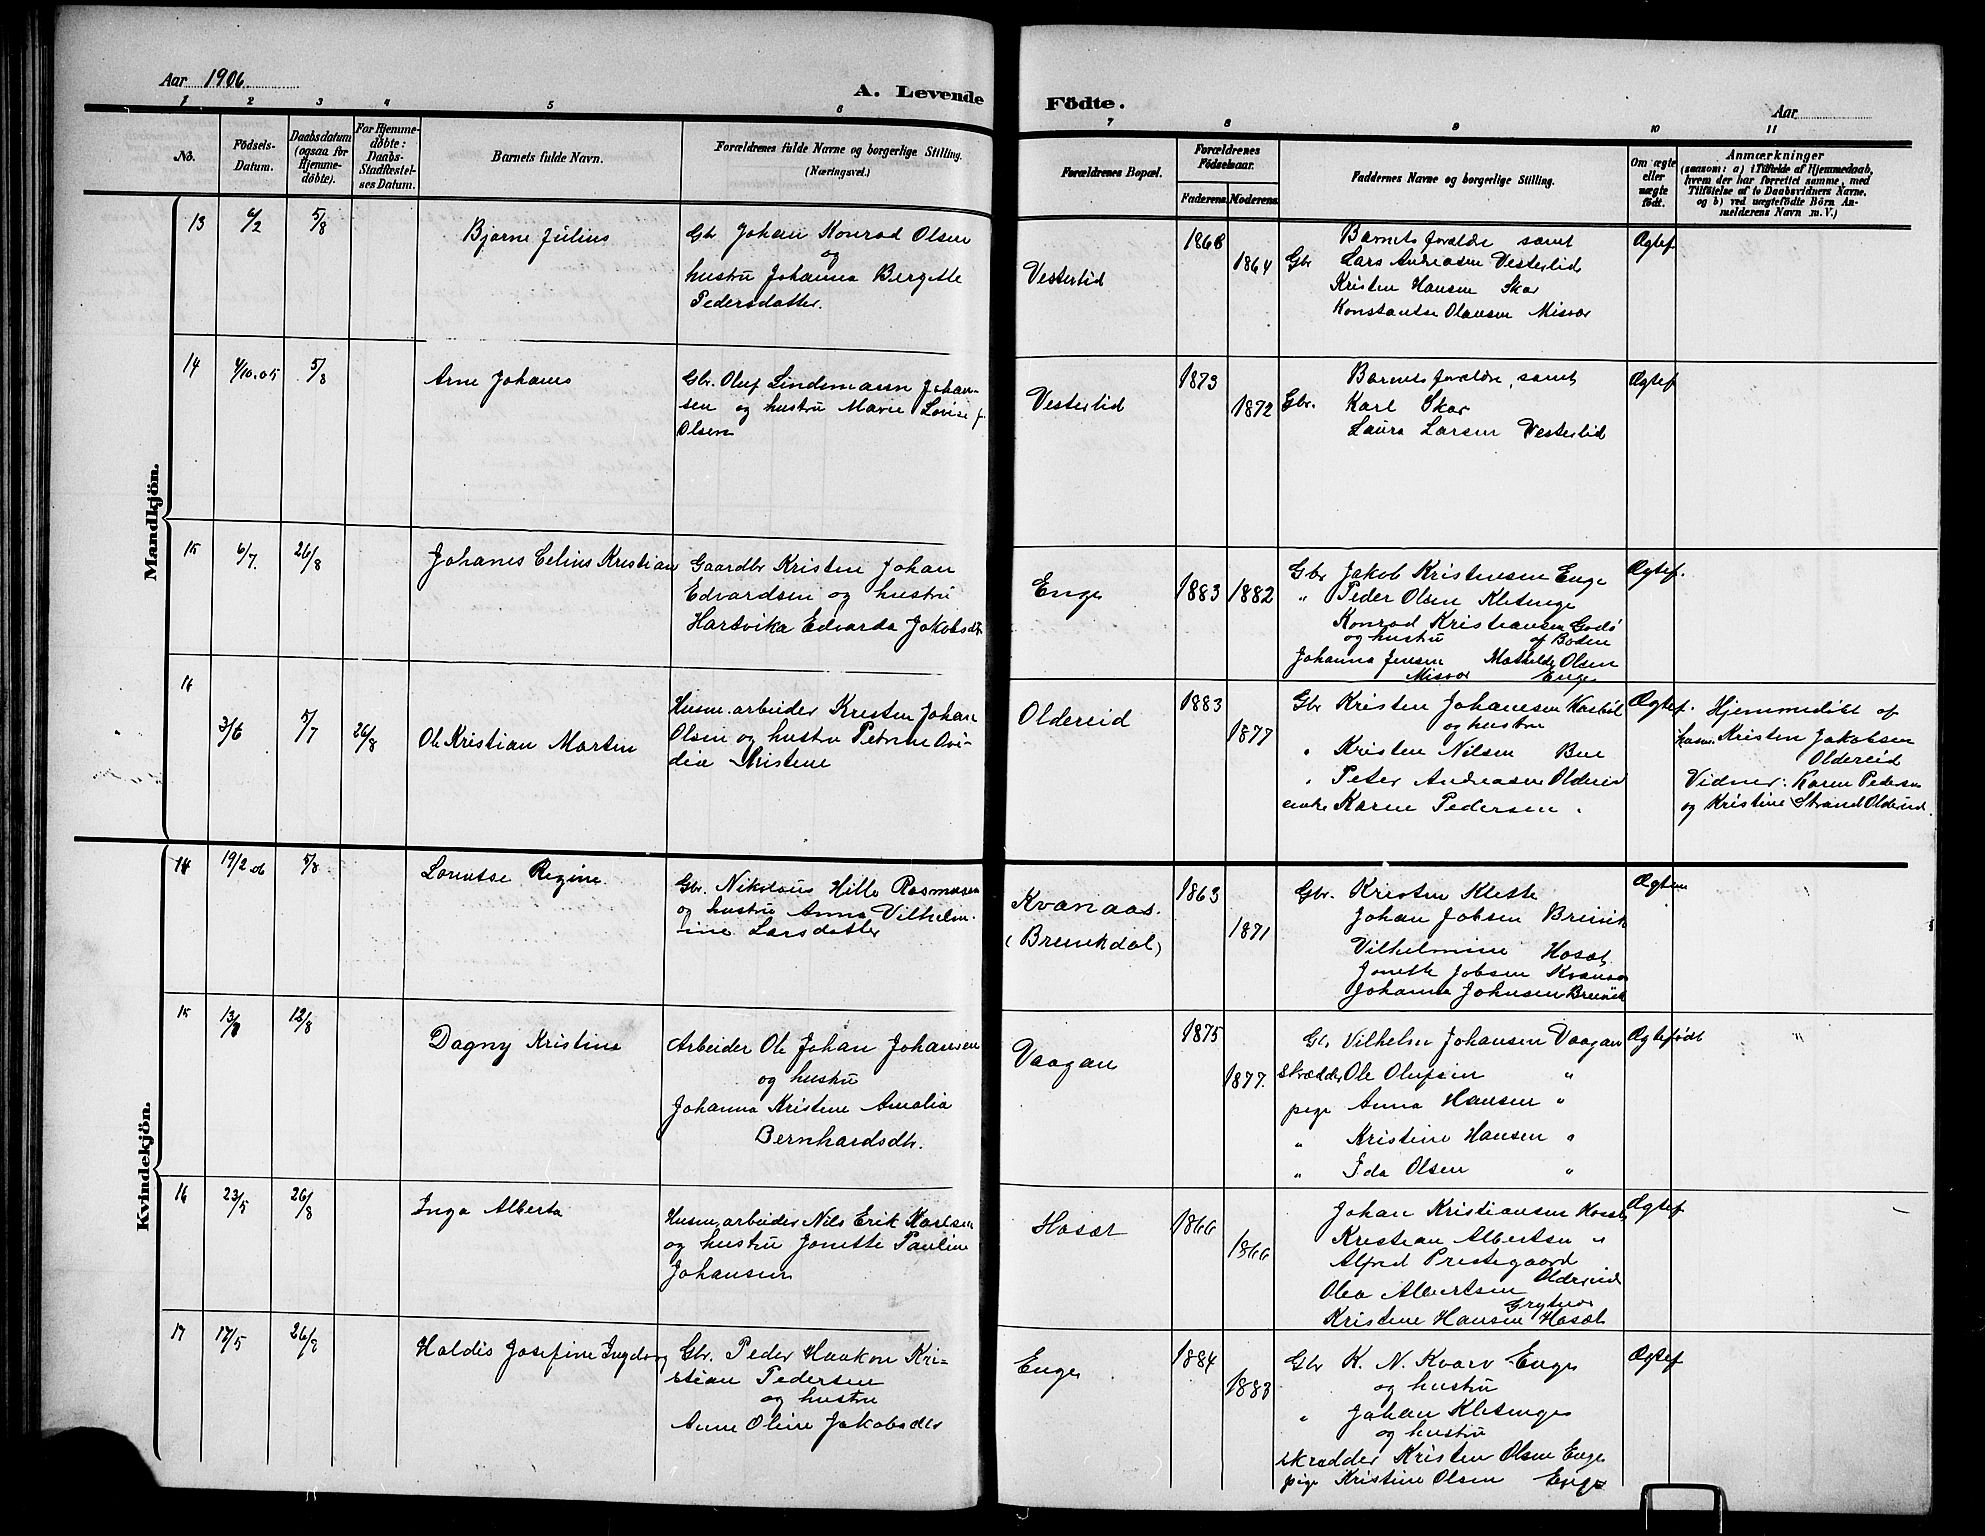 Aar 1906.
A. Levende Födte.
Aar
1 2 3 4 5 6 7 8 9 10 11
No.
Födsels-
Datum.
Daabsdatum
(ogsaa for
Hjemme-
döbte).
For Hjemme-
döbte:
Daabs-
Stadfæstel-
ses Datum.
Barnets fulde Navn.
Forældrenes fulde Navne og borgerlige Stilling.
(Næringsvei.)
Forældrenes Bopæl.
Forældrenes
Födselsaar.
Faderens. Moderens.
Faddernes Navne og borgerlige Stilling.
Om ægte
eller
uægte
födt.
Anmærkninger
(saasom: a) i Tilfælde af Hjemmedaab,
hvem der har forrettet samme, med
Tilföielse af to Daabsvidners Navne.
og b) ved uægtefödte Börn An-
melderens Navn m. V.)
Mandkjön.
13 6/2 5/8
Bjarne Julius
Gb Johan Konrad Olsen
og
hustru Johanna Bergitte
Pedersdatter.
Vesterlid
1868
1864
Barnets forældre samt
Gbr Lars Andreasen Vesterlid
Kristen Hansen Skar
Konstantse Olausen Misvær
Ægtef
14 4/10.05 5/8
Arne Johanes
Gbr. Oluf Lindemann Johan-
sen og hustru Marie Lovise f.
Olsen
Vesterlid
1873
1872
Barnets forældre, samt
Gbr. Karl Skar
Laura Larsen Vesterlid
Ægtef
15 6/7. 26/8
Johanes Celius Kristian
Gaardbr Kristen Johan
Edvardsen og hustru
Hartvika Edvarda Jakobsdtr
Enge
1883 1882
Gbr Jakob Kristensen Enge
" Peder Olsen Kletenge
Konrad Kristiansen Godö
og hustru af Bodin
Johanna Jensen Mathilde Olsen
Misvær Enge
Ægtef.
16 3/6 5/7 26/8
Ole Kristian Martin
Husm. arbeider Kristen Johan
Olsen og hustru Petrine Ovi-
dia Kristine
Oldereid
1883
1877
Gbr Kristen Johansen Karbøl
og hustru
" Kristen Nilsen Bue
" Peter Andreasen Oldereid
enke Karen Pedersen "
Ægtef.
Hjemmedøbt af
husm. Kristen Jakobsen
Oldereid
Vidner: Karen Pedersen
og Kristine Strand Oldereid.
Kvindekjön.
14 19/2 06 5/8
Lorentse Regine.
Gbr. Nikolaus Hille Rasmusen
og hustru Anna Vilhelm-
ine Larsdatter
Kvanaas.
(Breivikdal)
1863
1871
Gbr. Kristen Klette
Johan Jobsen Breivik
Vilhelmine Hosæt
Jonette Jobsen Kvanaas
Johanna Johnsen Breivik
Ægtem
15 13/3 12/8
Dagny Kristine
Arbeider Ole Johan Johansen
og hustru
Johanna Kristine Amalia
Bernhardsdtr.
Vaagan
1875
1877.
Gb. Vilhelm Johansen Vaagan
skrædder Ole Olufsen "
pige Anna Hansen "
" Kristine Hansen "
" Ida Olsen "
Ægtefødt
"
16 23/5 26/8
Inga Alberta
Husm. arbeider Nils Erik Karlsen
og hustru Jonette Pauline
Johansen
Hosæt
1866
1866
Johan Kristiansen Hosæt
Kristian Albertsen "
Alfred Prestegaard
Oldereid
Olea Albertsen
Grytvær
Kristine Hansen Hosæt
Ægtef
17 17/5 26/8
Haldis Josefine Ingeborg
Gbr. Peder Haakon Kri-
stian Pedersen
og hustru
Anne Oline Jakobsdtr
Enge
1884
1883
Gbr K. N. Kvarv Enge
og hustru
" Johan Kletenge
og hustru
skrædder Kristen Olsen Enge
pige Kristine Olsen Enge
Ægtef